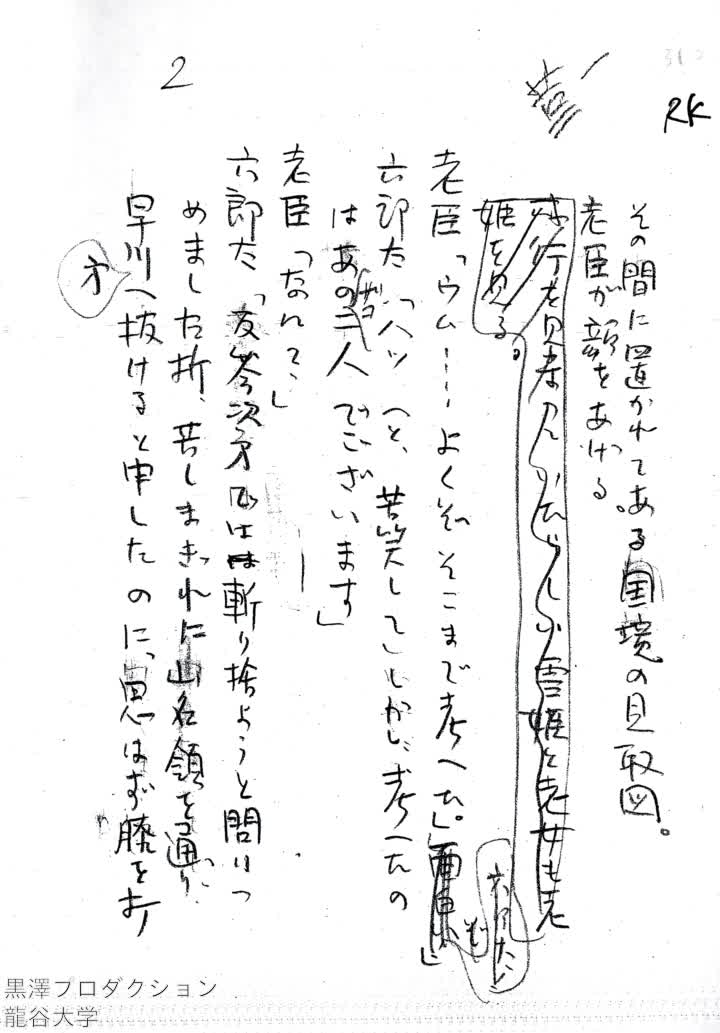 2
RK
その間に置かれてある国境の見取図。
老臣が顔をあける。
雪姫と老女も老
姫を見る。
老臣「ウム……よくぞそこまで考へた」
六郎太「ハッ(と、苦笑して)しかし、考へたの
はあの二人でございます」
老臣「なれて、」
六郎太「は斬り捨ようと問ひつ
めました折、苦しまぎれに山名領を通り、
早川へ抜けると申したのに、思はず膝を打
黒澤プロダクション
龍谷大学